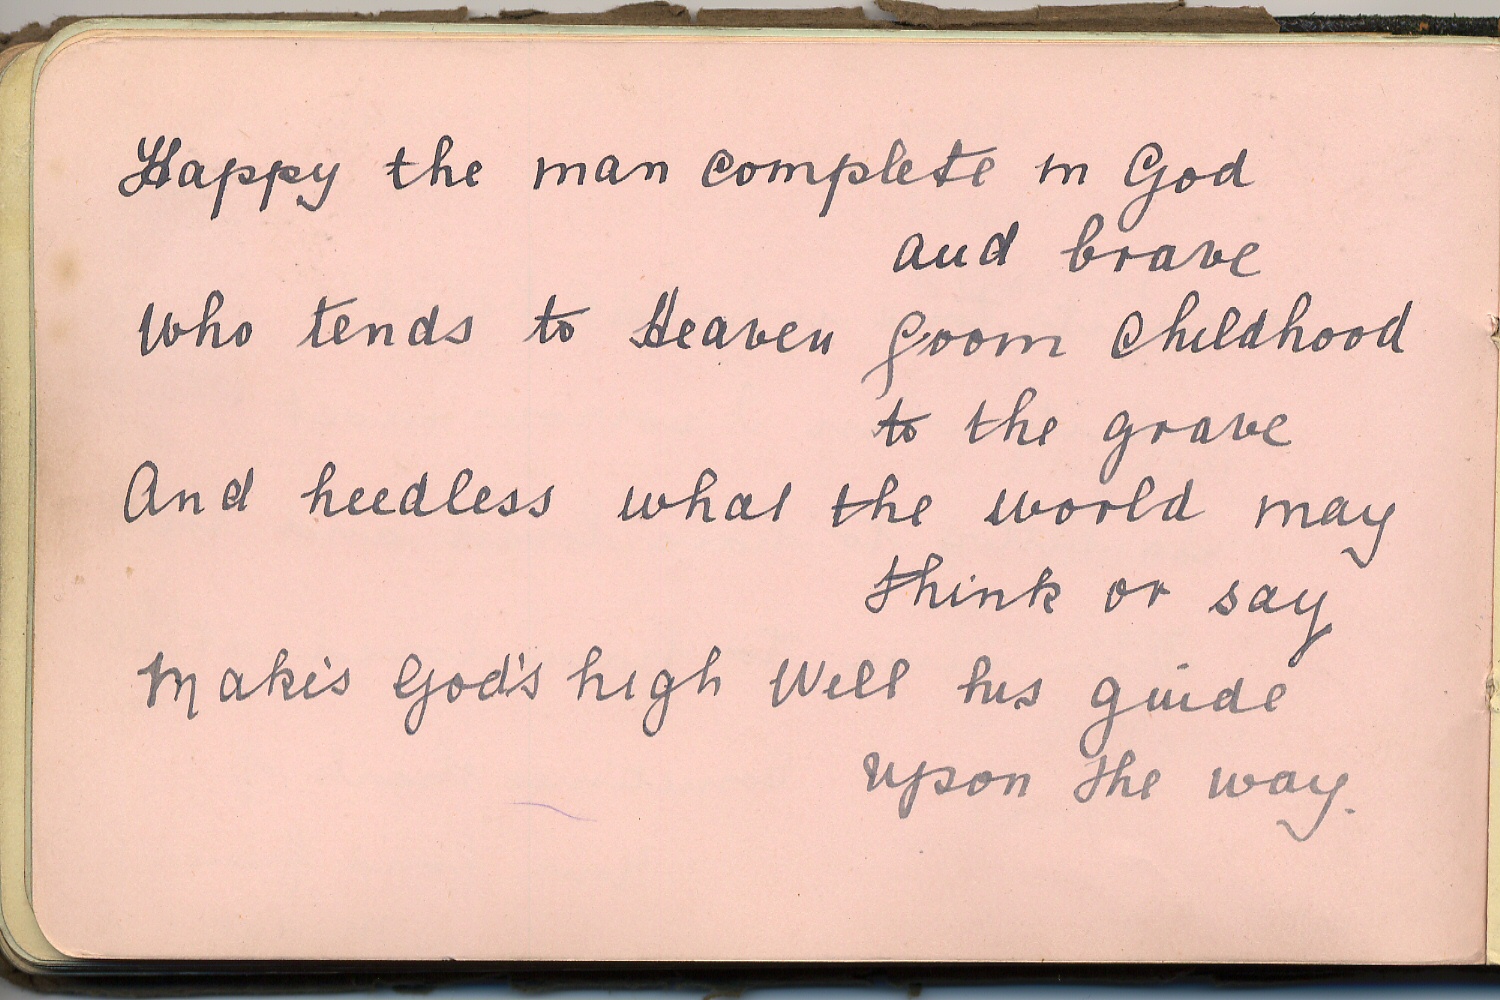 Happy the man complete in God
and brave
Who tends to Heaven from Childhood
to the grave
And heedless what the world may
think or say
Makes God's high Will his guide
upon the way.